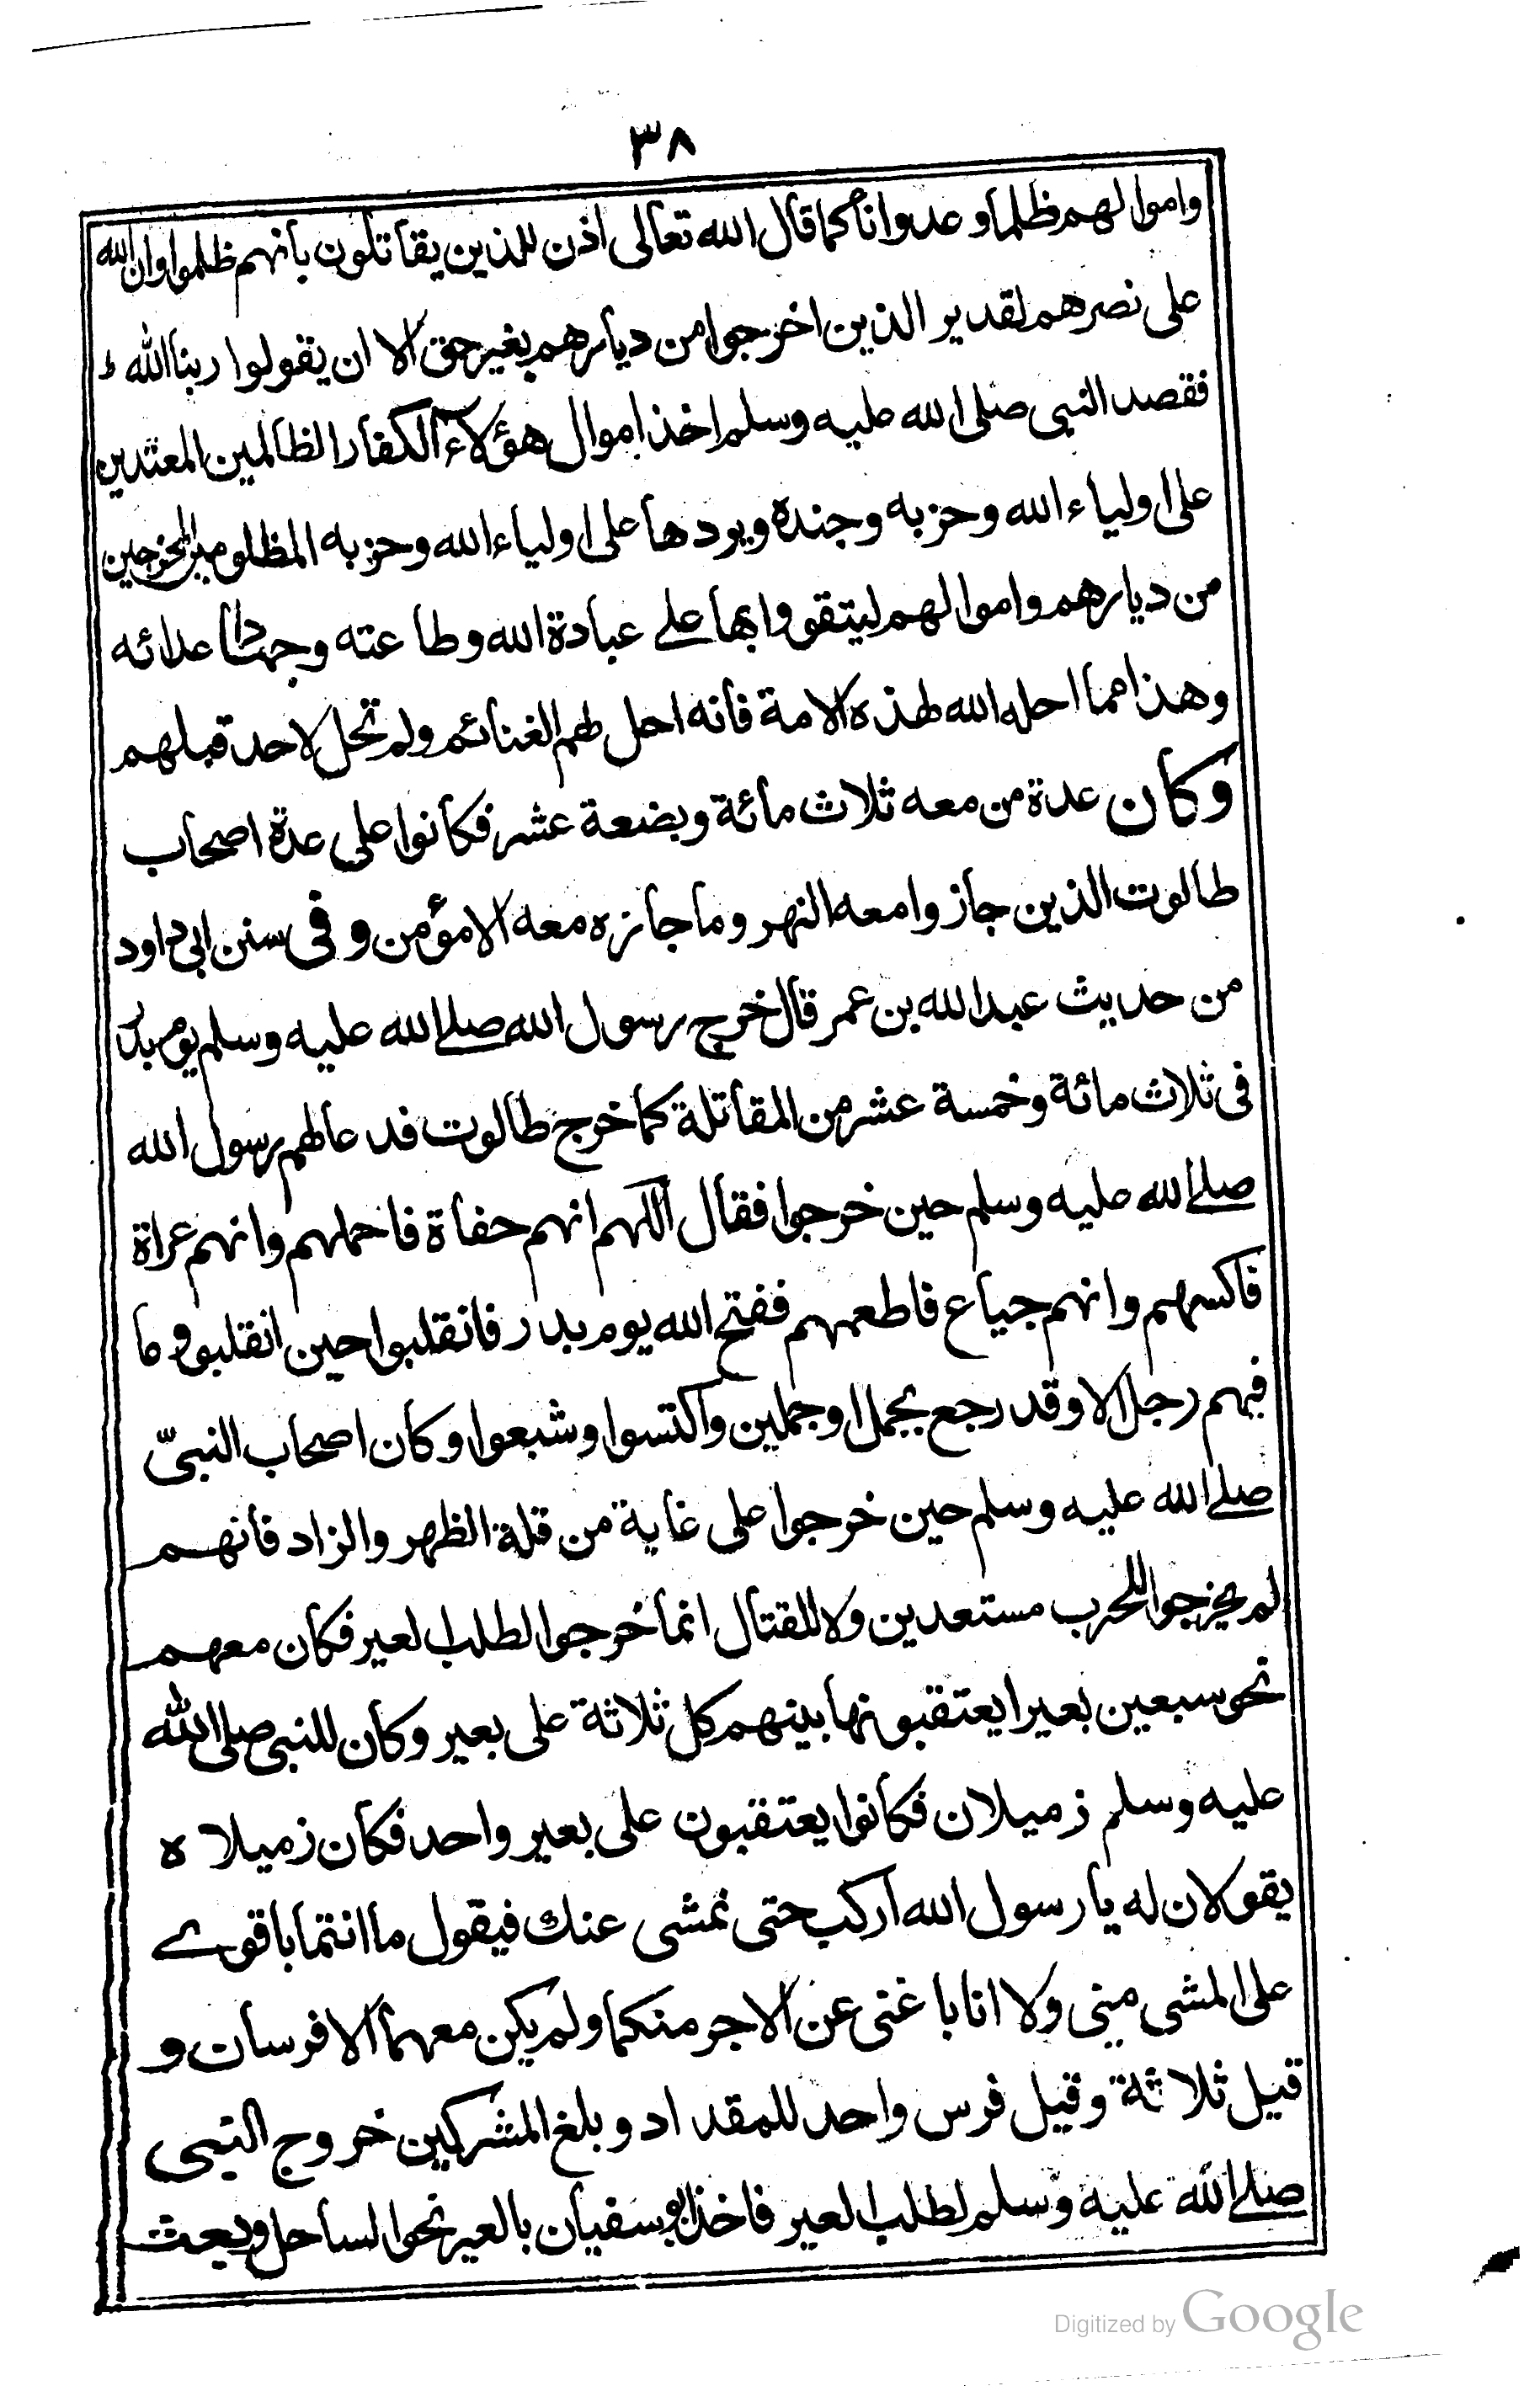 ٣٨
واموالهم ظلما وعدوانا كما قال الله تعالى اذن للذين يقاتلون بانهم ظلموا وان الله
على نصرهم لقدير الذين اخرجوا من ديارهم بغير حق الا ان يقولوا ربنا الله
فقصد النبى صلى الله عليه وسلم اخذ اموال هؤلاء الكفار الظالمين المعتدين
على اولياء الله وحزبه وجنده ويردها على اولياء الله وحزبه المظلومين المخرجين
من ديارهم واموالهم ليتقووا بها على عبادة الله وطاعته وجهاد اعدائه
وهذا مما احله الله لهذه الامة فانه احل لهم الغنائم ولم تحل لاحد قبلهم
وكان عدة من معه ثلاث مائة وبضعة عشر فكانوا على عدة اصحاب
طالوت الذين جازوا معه النهر وما جازه معه الا مؤمن وفى سنن ابى داود
من حديث عبد الله بن عمر قال خرج رسول الله صلے الله عليه وسلم يوم بدر
فى ثلاث مائة وخمسة عشر من المقاتلة كما خرج طالوت فدعا لهم رسول الله
صلے الله عليه وسلم حين خرجوا فقال اللهم انهم حفاة فاحملهم وانهم عراة
فاكسهم وانهم جياع فاطعمهم ففتح الله يوم بدر فانقلبوا حين انقلبوا وما
فيهم رجل الا وقد رجع بجمل او جملين واكتسوا وشبعوا وكان اصحاب النبىّ
صلے الله عليه وسلم حين خرجوا على غاية من قلة الظهر والزاد فانهم
لم يخرجوا للحرب مستعدين ولا للقتال انما خرجوا لطلب العير فكان معهم
نحو سبعين بعيرا يعتقبونها بينهم كل ثلاثة على بعير وكان للنبى صلى الله
عليه وسلم زميلان فكانوا يعتقبون على بعير واحد فكان زميلاه
يقولان له يا رسول الله اركب حتى نمشى عنك فيقول ما انتما باقوے
على المشى منى ولا انا باغنى عن الاجر منكما ولم يكن معهما الا فرسان و
قيل ثلاثة وقيل فرس واحد للمقداد وبلغ المشركين خروج النبى
صلے الله عليه وسلم لطلب العير فاخذ ابو سفيان بالعير نحو الساحل وبعث
Digitized by Google